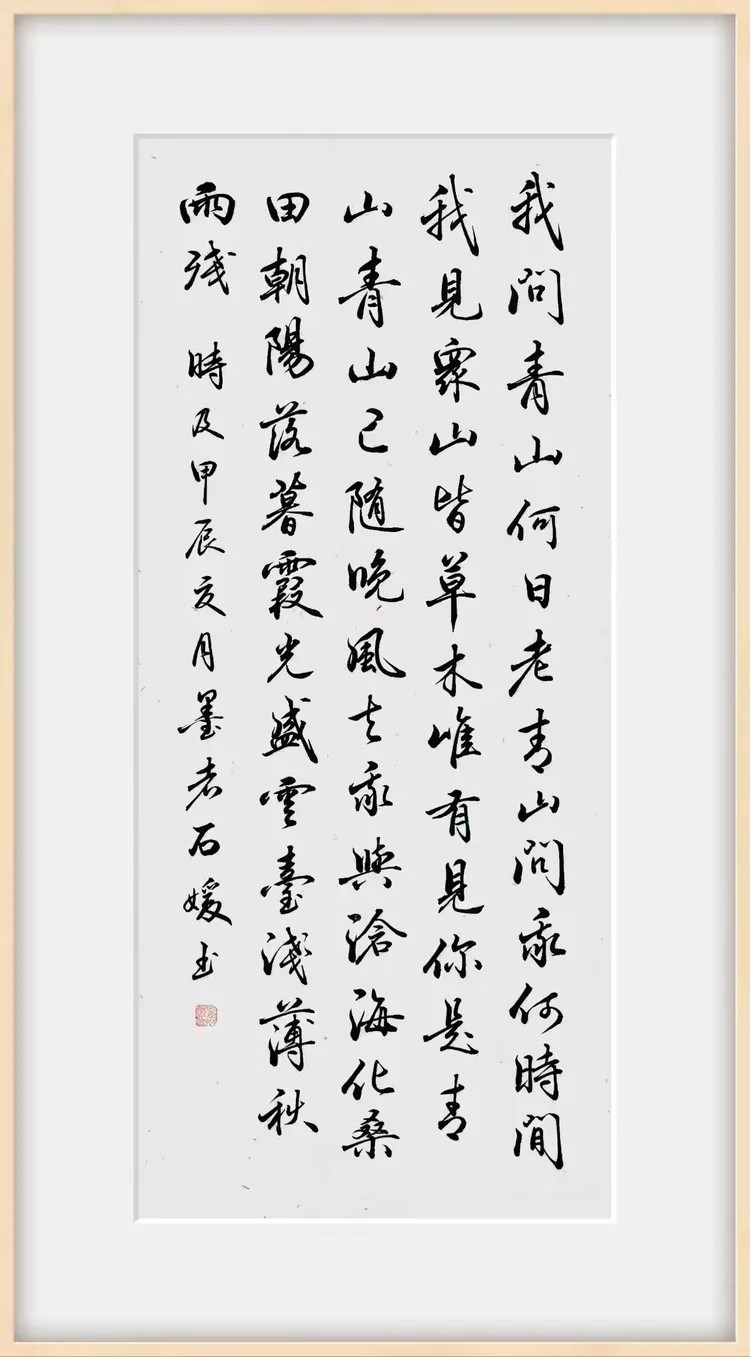 我問青山何日老青山問我何時閒
我見眾山皆草木唯有見你是青
山青山已隨晚風去我與滄海化桑
田朝陽落暮霞光盛雲臺淺薄秋
雨殘 時及甲辰亥月墨者石媛玉